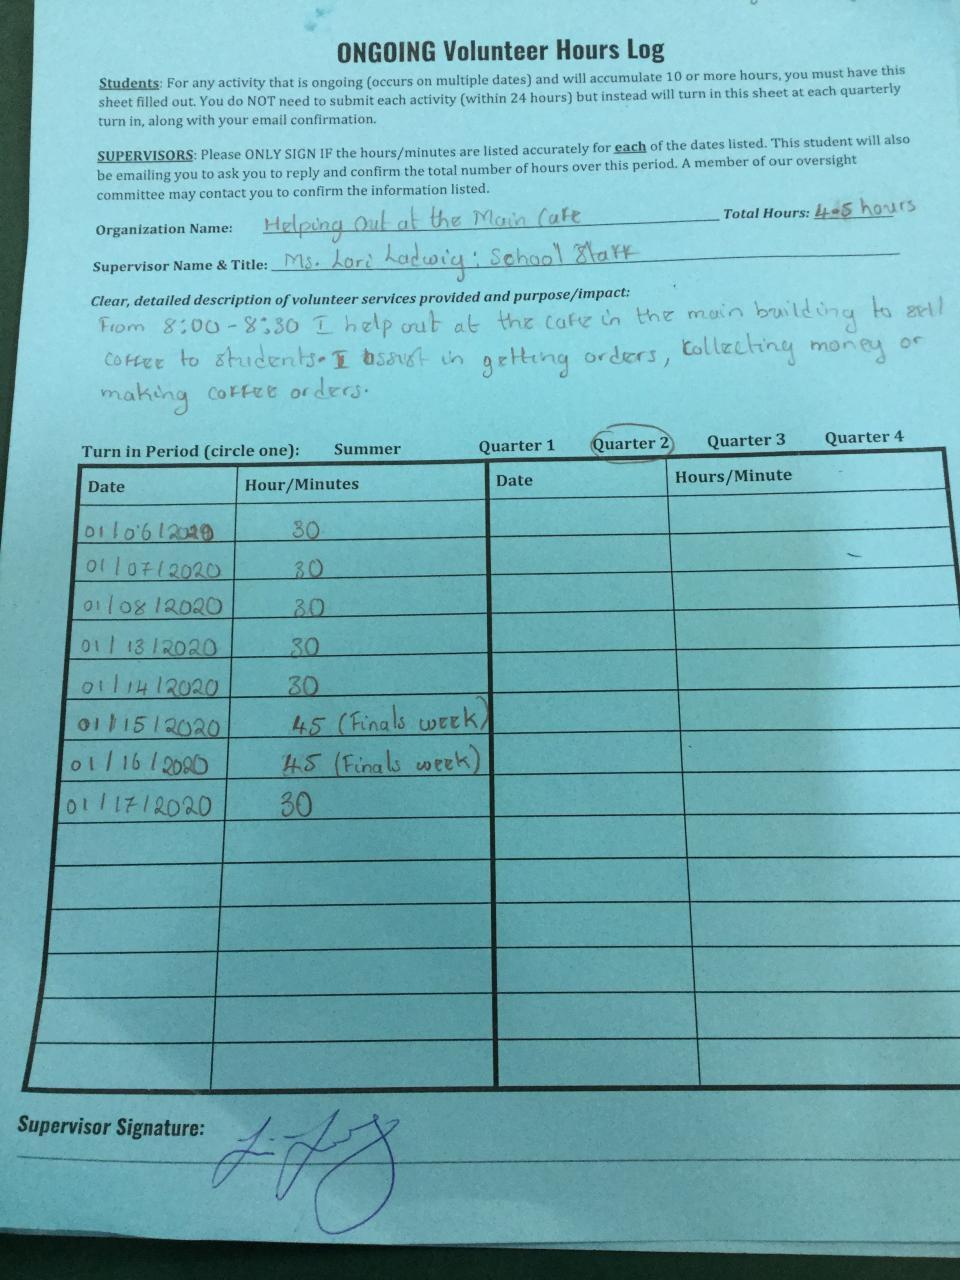 ONGOING Volunteer Hours Log
Students: For any activity that is ongoing (occurs on multiple dates) and will accumulate 10 or more hours, you must have this
sheet filled out. You do NOT need to submit each activity (within 24 hours) but instead will turn in this sheet at each quarterly
turn in, along with your email confirmation.
SUPERVISORS: Please ONLY SIGN IF the hours/minutes are listed accurately for each of the dates listed. This student will also
be emailing you to ask you to reply and confirm the total number of hours over this period. A member of our oversight
committee may contact you to confirm the information listed.
Organization Name: Helping Out at the Main Cafe Total Hours: 4.5 hours
Supervisor Name & Title: Ms. Lori Ladwig; School Staff
Clear, detailed description of volunteer services provided and purpose/impact:
From 8:00 - 8:30 I help out at the cafe in the main building to sell
coffee to students. I assist in getting orders, collecting money or
making coffee orders.
Turn in Period (circle one): Summer Quarter 1 Quarter 2 Quarter 3 Quarter 4
Date Hour/Minutes Date Hours/Minute
01/06/2020 30
01/07/2020 30
01/08/2020 30
01/13/2020 30
01/14/2020 30
01/15/2020 45 (Finals week)
01/16/2020 45 (Finals week)
01/17/2020 30
Supervisor Signature: